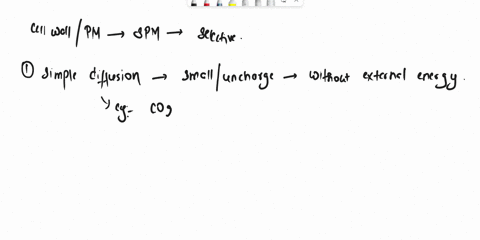 cell wall/PM → SPM → selective.
① simple diffusion → small/uncharge → without external energy.
↳ eg:- CO2